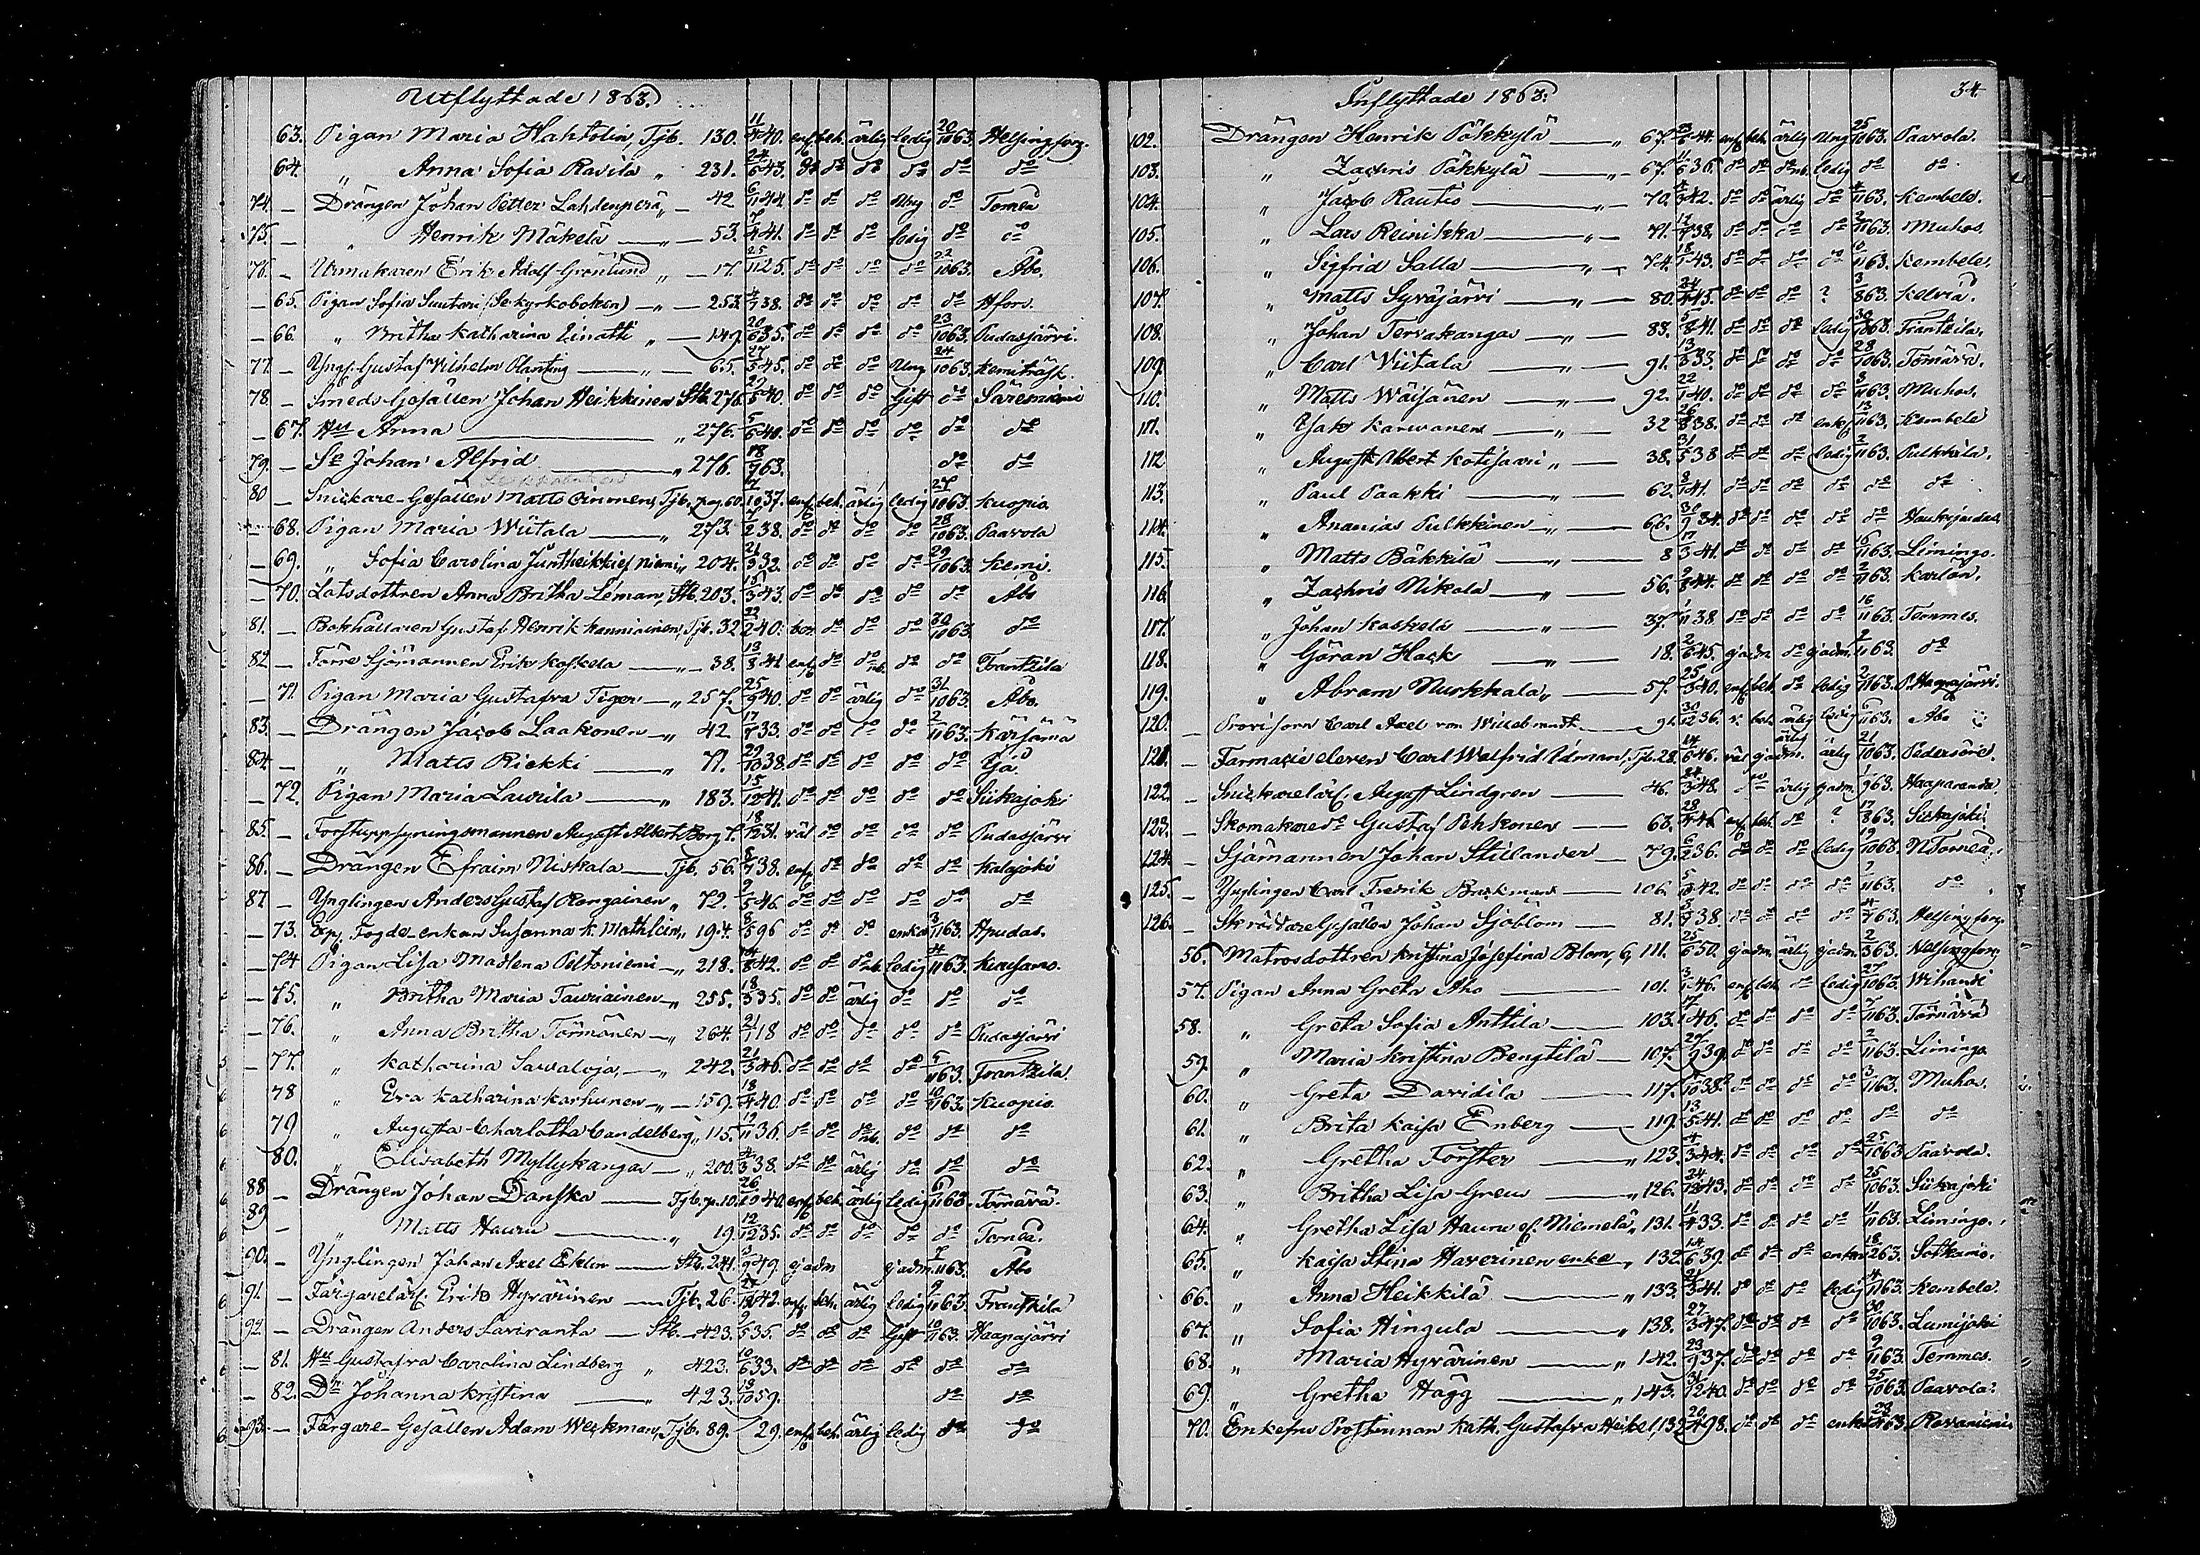 Utflyttade 1863.
63. Pigan Maria Hahtolin, Tjb. 130. 11/4 40. enf. beh. ärlig ledig 20/10 63. Helsingfors.
64. " Anna Sofia Ravila " 231. 24/6 43. do do do do do do
74. — Drängen Johan Petter Lahdenperä " — 42 6/11 44. do do do Ung do Torneå
75. — " Henrik Mäkelä — " — 53. 7/4 41. do do do ledig do do
76. — Urmakaren Erik Adolf Grönlund " — 17. 25/11 25. do do do do 22/10 63. Åbo.
— 65. Pigan Sofia Suutari (Se kyrkoboken) — " — 253. 38. do do do do do Hfors.
— 66. " Britha Katharina Einatti " — 149. 20/6 35. do do do do 23/10 63. Pudasjärvi.
77. — Yngl. Gustaf Wilhelm Planting — " — 65. 27/5 45. do do do Ung 24/10 63. Kemiträsk.
78 — Smeds Gesällen Johan Heikkinen Stb. 276. 29/5 40. do do do Gift do Säresniemi
— 67. Hu Anna — " 276. 5/6 40. do do do do do do
79. — Sn Johan Alfrid — " 276. 18/7 63. do do
80 — Snickare-Gesällen Matts Cimmen, Tjb. pag. 60. 10 37. enf. beh. ärlig ledig 27/10 63. Kuopio.
— 68. Pigan Maria Wiitala — " 273. 7/2 38. do do do do 28/10 63. Paavola
— 69. " Sofia Carolina Juntheikki ef. Niemi " 204. 21/3 32. do do do do 29/10 63. Kemi.
— 70. Lotsdottren Anna Britha Leman, Stb. 203. 15/5 43. do do do do do Åbo
81. — Bokhållaren Gustaf Henrik Kanniainen, Tjb. 32 22/2 40. do do do 30/10 63. do
82 — Förre Sjömannen Erik Koskela — " — 38. 13/8 41 enf. do do do do Frantzila
— 71. Pigan Maria Gustafva Tiger — " 257. 25/9 40. do do ärlig do 31/10 63. Åbo.
83. — Drängen Jacob Laakonen — " 42 17/7 33. do do do do 2/11 63. Kärsämä
84. — " Matts Riekki — " 71. 29/10 38. do do do do do Ijå
— 72. Pigan Maria Laurila — " 183. 15/12 41. do do do do do Siikajoki
85. — Forstuppsyningsmannen August Albert Borg 7. 18/12 31. väl do do do do Pudasjärvi
86. — Drängen Efraim Niskala — Tjb. 56. 8/7 38. enf. do do do do Kalajoki
87 — Ynglingen Anders Gustaf Rongainen " 72. 2/5 46. do do do do do do
— 73. Exp. Fogde-enkan Susanna K. Mathlein, 194. 8/5 96 do do do enka 3/11 63. Hpudas.
— 74 Pigan Lisa Madlena Peltoniemi — " 218. 14/8 42. do do do ledig 4/11 63. Kuusamo.
— 75. " Britha Maria Tauriainen — " 255. 18/3 35. do do ärlig do do do
— 76. " Anna Britha Törmänen — " 264. 21/7 18 do do do do do Pudasjärvi
— 77. " Katharina Savaloja — " 242. 21/3 46. do do do do 5/11 63. Frantzila.
78 " Eva Katharina Karhunen — " — 159. 18/4 40. do do do do 10/11 63. Kuopio.
79 " Augusta Charlotta Candelberg " 115. 19/11 36. do do do do do do
80. " Elisabeth Myllykangas — " 200. 4/3 38. do do ärlig do do do
88 — Drängen Johan Danska — Tjb. p. 10. 26/10 40. enf. beh. ärlig ledig 6/11 63. Törnävä.
89 — " Matts Hauru — " 19. 12/12 35. do do do do do Torneå.
90. — Ynglingen Johan Axel Eklin — Stb. 241. 3/9 49. ej adm ej adm. 7/11 63. Åbo
91. — Färgarelärl. Erik Hyvärinen — Tjb. 26. 24/12 42. enf. beh. ärlig ledig 9/11 63. Frantzila
92. — Drängen Anders Saviranta — Stb. — 423. 2/5 35. do do do Gift 10/11 63. Haapajärvi
— 81. Hu Gustafva Carolina Lindberg " 423. 10/6 33. do do do do do do
— 82. Dr Johanna Kristina — " 423. 13/10 59. do do
93. — Färgare-Gesällen Adam Weckman, Tjb. 89. 29. enf. beh. ärlig ledig do do
Inflyttade 1863. 34
102. Drängen Henrik Päkkylä — " 67. 23/6 44. enf. beh. ärlig Ung 25/10 63. Paavola.
103. " Zachris Päkkylä — " 67. 11/6 36. do do do ledig do do
104. " Jacob Rautio — " — 70. 4/3 42. do do ärlig do 4/11 63. Kembele.
105. " Lars Reinikka — " — 71. 12/7 38. do do do do 2/11 63. Muhos.
106. " Sigfrid Salla — " — 74. 18/1 43. do do do do 10/11 63. Kembele.
107. " Matts Syväjärvi — " — 80. 24/4 45. do do do ? 3/8 63. Kelviå.
108. " Johan Tervakangas — " — 83. 5/8 41. do do do ledig 30/10 63. Frantzila.
109. " Carl Viitala — " — 91. 13/8 33. do do do do 28/10 63. Törnävä.
110. " Matts Wäisänen — " — 92. 22/1 40. do do do do 3/11 63. Muhos.
111. " Isak Karwonen — " — 32 26/8 38. do do do enkl. 13/11 63. Kembele
112 " August Albert Kotisaari " — 38. 31/5 38 do do do ledig 2/11 63. Pulkkila.
113. " Paul Paakki — " 62. 2/1 41. do do do do do do
114. " Ananias Pulkkinen — " 66. 30/9 34. do do do do do Haukipudas.
115. " Matts Bäkkilä — " 8 17/3 41. do do do do 16/11 63. Limingo.
116 " Zachris Nikola — " 56. 9/8 44. do do do do 2/11 63. Karlön.
117. " Johan Koskela — " — 37. 1/11 38 do do do do 16/11 63. Temmes.
118. " Göran Hack — " — 18. 2/6 45. ej adm. do ej adm. 2/11 63. do
119. " Abram Nurkkala " — 57. 25/3 40. enf. beh. do ledig 2/11 63. P. Haapajärvi.
120. — Provisorn Carl Axel von Willebrandt — 91. 30/12 36. v. beh. ärlig ledig 6/11 63. Åbo
121. — Farmacie eleven Carl Walfrid Idman, Tjb. 28. 14/6 46. väl ej adm. ärlig 21/10 63. Pedersöre.
122. — Snickarelärl. August Lindgren — 46. 24/3 48. do ärlig ej adm. 1/9 63. Haaparanda.
123. — Skomakare do Gustaf Pehkonen — 63. 28/4 46 enf. beh. do ? 17/8 63. Siikajoki.
124. — Sjömannen Johan Stillander — 79. 6/2 36. do do do ledig 19/10 63. N. Torneå.
125. — Ynglingen Carl Fredrik Brakman — 106. 5/8 42. do do do do 2/11 63. do
126. — Skräddare Gesällen Johan Sjöblom — 81. 5/7 38. do do do do 4/7 63. Helsingfors.
56. Matrosdottren Kristina Josefina Blom, G, 111. 25/6 50. ej adm. ärlig ej adm. 2/3 63. Helsingfors.
57. Pigan Anna Greta Aho — 101. 3/1 46. enf. beh. do ledig 27/10 63. Wihandi
58. " Greta Sofia Anttila — 103. 17/1 46. do do do do 7/11 63. Törnävä
59. " Maria Kristina Bengtilä — 107. 24/9 39. do do do do 2/11 63. Limingo
60. " Greta Davidila — 117. 1/10 38. do do do do 3/11 63. Muhos.
61. " Brita Kaisa Enberg — 119. 13/5 41. do do do do do do
62. " Gretha Forster — " 123. 4/3 44. do do do do 25/10 63 Paavola.
63. " Britha Lisa Greus — " 126. 24/12 43. do do do do 25/10 63. Siikajoki
64. " Gretha Lisa Hauru ef. Niemelä " 131. 11/4 33. do do do do 11/11 63. Limingo.
65. " Kaisa Stina Haverinen enka " 132. 14/6 39. do do do enka 18/2 63. Sotkamo.
66. " Anna Heikkilä — " 133. 21/3 41. do do do ledig 4/11 63. Kembele.
67. " Sofia Hingula — " 138. 27/3 47. do do do do 30/10 63. Lumijoki
68. " Maria Hyvärinen — " 142. 23/9 37. do do do do 9/11 63. Temmes.
69. " Gretha Hägg — " 143. 31/12 40. do do do do 25/10 63. Paavola.
70. Enkefru Prostinnan Kath. Gustafva Heikel, 132 20/4 98. do do do enka 28/4 63. Rovaniemi.